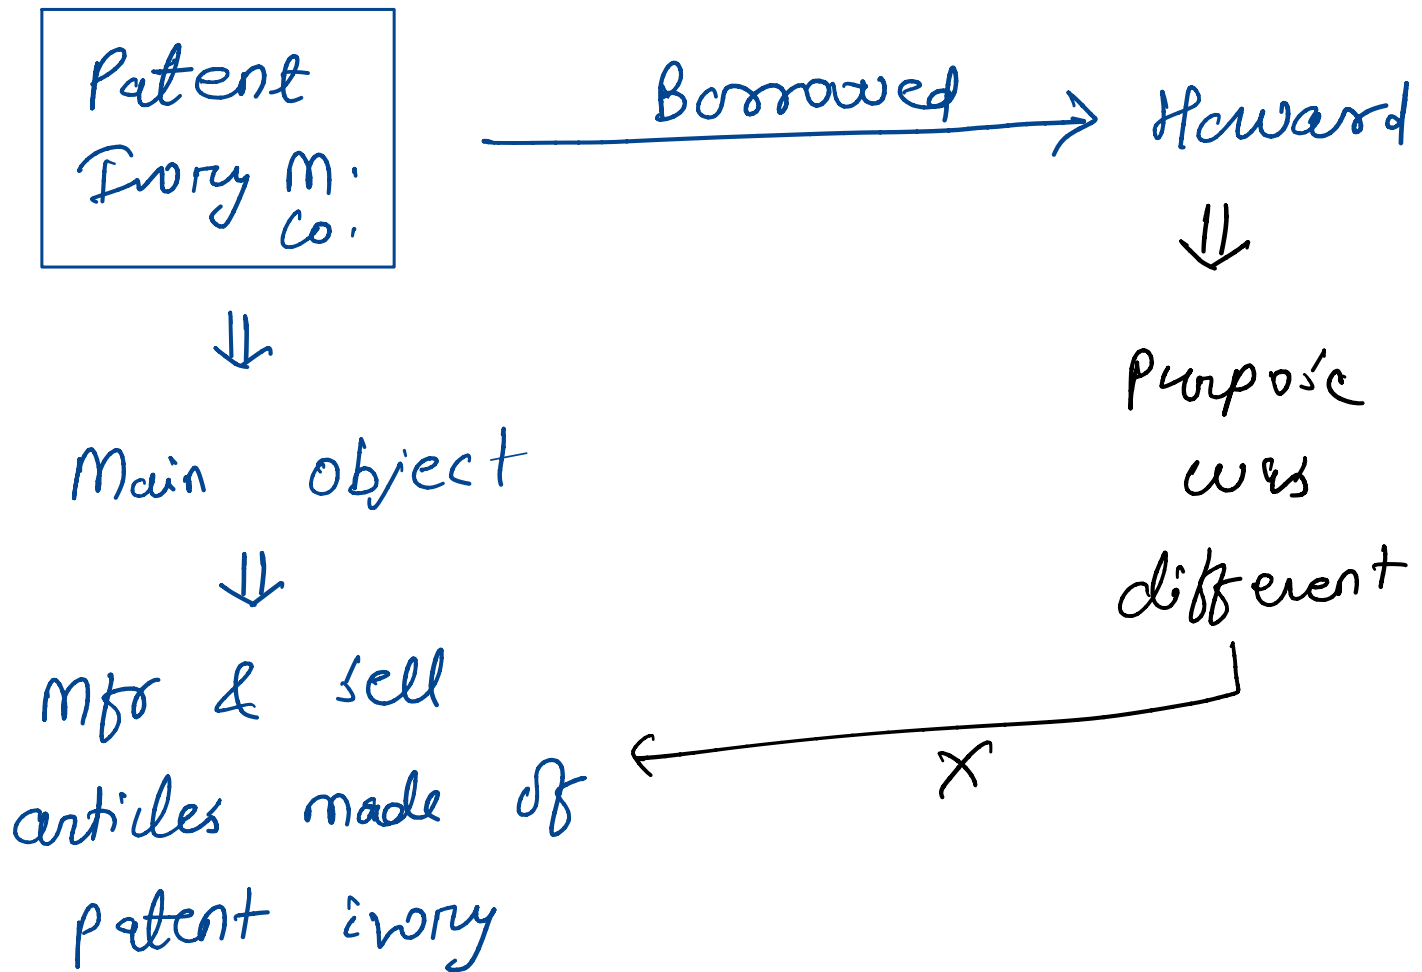 Patent
Ivory M.
Co.
Borrowed
Howard
Main object
Mfr & sell
articles made of
patent ivory
Purpose
was
different
X